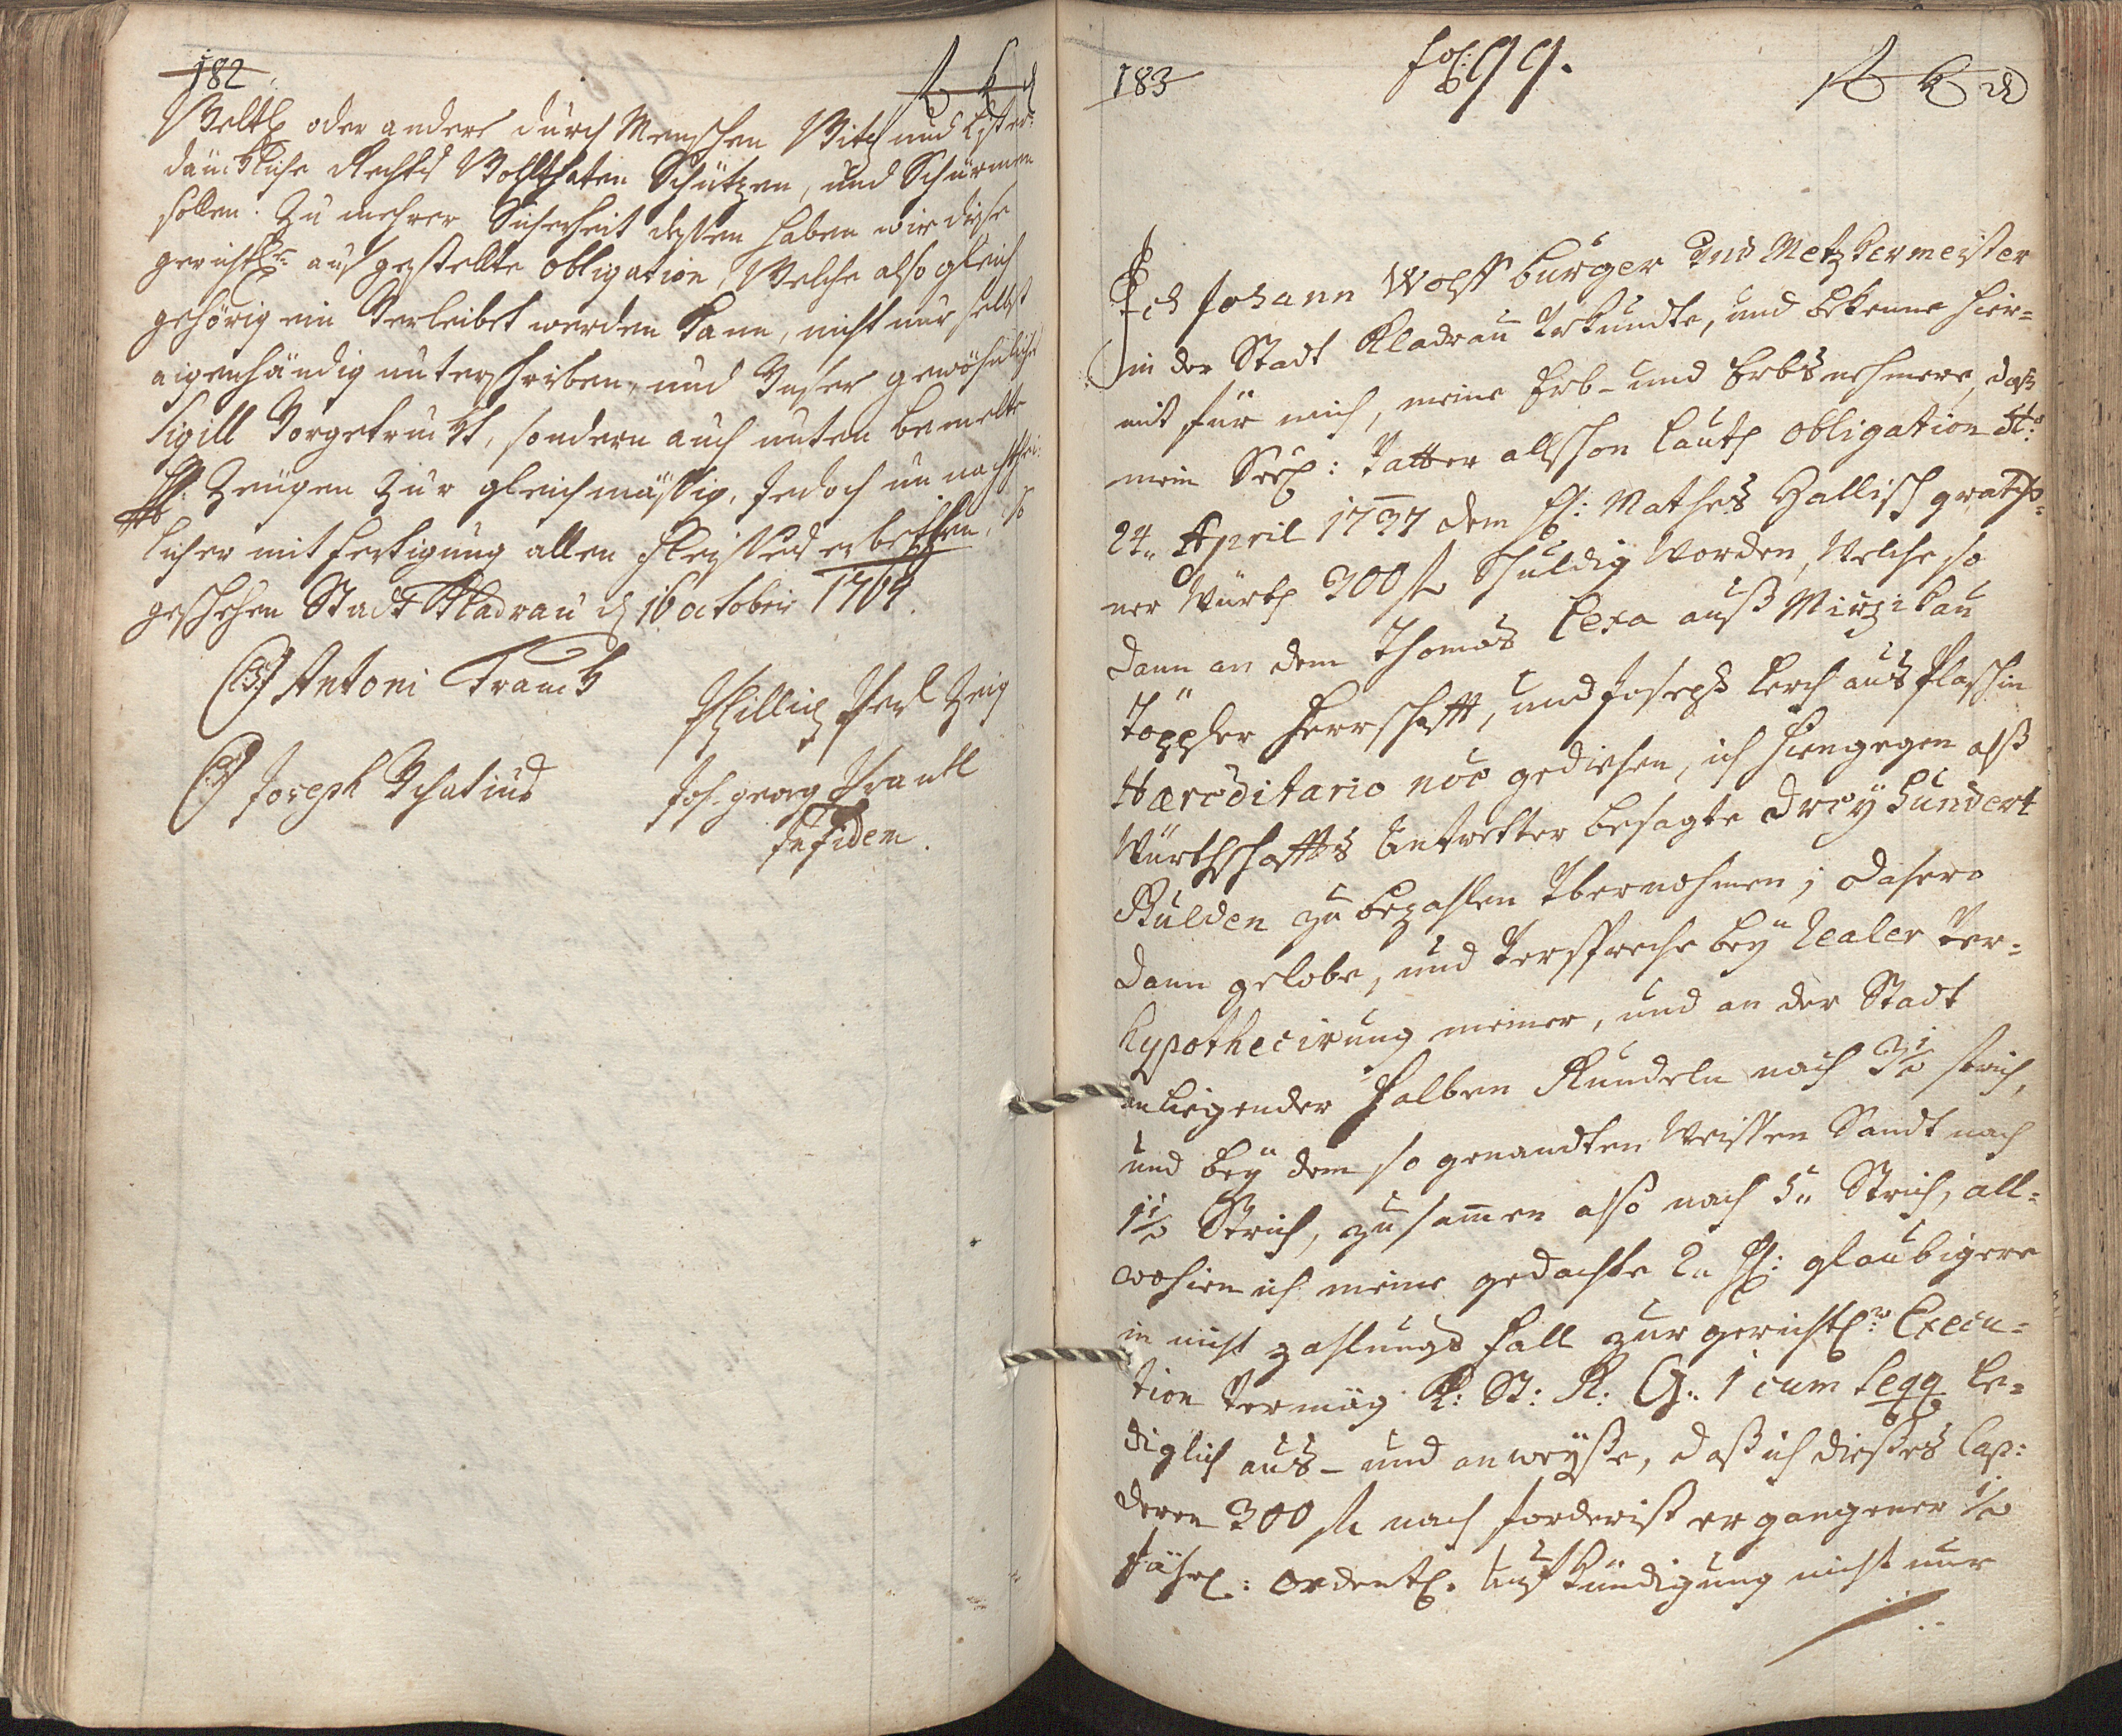 182
f k d
Weltl oder andere durch Menschen Witz und
dänckliche Rechts Wohlthaten Schützen, und Schürmen
sollen. Zu mehrer Sicherheit dessen haben wir diese
gerichtl: aus gestelte obligation, Welche also gleich
gehörig ein Verleibet werden kann, nicht nur selbst
eigenhändig unterschriben, und Unser gewöhnliches
Sigill Vorgetruckt, sondern auch unten bemelte
H: Zeugen zur gleichmässig, Jedoch un nachthei:
licher mit fertigung allen Fleisses erbethen, so
geschehen Stadt Kladrau d 16 october 1764.
(LS) Antoni Franck
Phillip Zeig
(LS) Joseph Ignatius
Joh. georg
In fidem.
183
fol: 99.
f k d
Ich Johann Wolff burger Und Metzkermeister
in der Stadt Kladrau Urkundte, und bekenne hier=
mit für mich, meine Erb- und Erbsnehmere, dass
mein Seel: Vatter allschon lauth obligation dt:
24. April 1737 dem H: Mathes Hallisch
ner Würth 300 f Schuldig Worden, Welche so
dann an dem Thomas Lexa auß Mirzikau
Töppler Herrschafft, und Joseph Lerch aus Plaschin
Haereditario noe gediehen, ich hiengegen alß
Würthschaffts Antretter besagte drey hundert
Gulden zu bezahlen Übernohmen; dahero
dann gelobe, und Verspreche bey realer Ver=
hypothecirung meiner, und an der Stadt
anliegender halben Kundeln nach 3½ strich,
und bey dem so genandten Weissen Sandt nach
1½ Strich, zusammen also nach 5. Strich, all=
wohien ich meine gedachte 2. H: glaubigere
in nicht zahlungs Fall zur gerichtl: Execu=
tion Vermög K: St: R: G. 1 cum seqq le=
diglich aus- und anweyße, daß ich dießes Cap:
deren 300 f nach forderist ergangener ½
Jährl: ordentl. Aufkündigung nicht nur